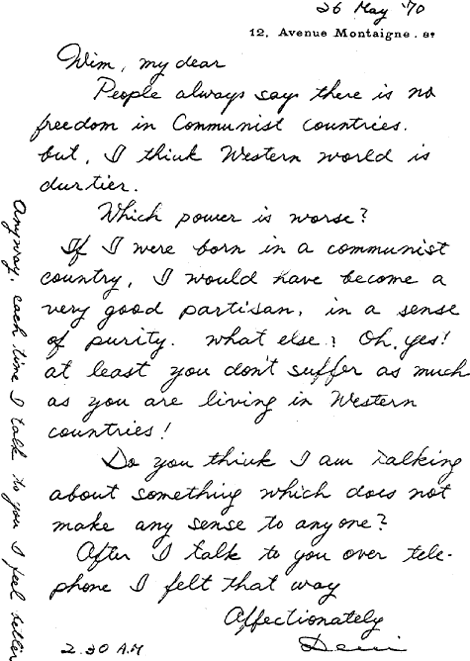 26 May '70
12, Avenue Montaigne. 8e
Wim, my dear
People always says there is no
freedom in Communist countries.
but, I think Western world is
durtier.
Which power is worse?
If I were born in a communist
country, I would have become a
very good partisan, in a sense
of purity. What else? Oh, yes!
at least you don't suffer as much
as you are living in Western
countries!
Do you think I am talking
about something which does not
make any sense to anyone?
After I talk to you over tele-
phone I felt that way
Affectionately
Dewi
2.30 A.M
Anyway, each time I talk to you I feel better